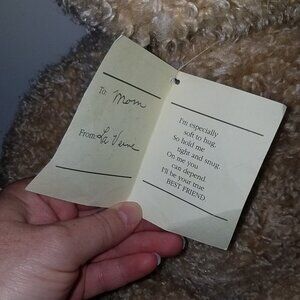 To: Mom
From: La Verne
I'm especially
soft to hug.
So hold me
tight and snug.
On me you
can depend.
I'll be your true
BEST FRIEND